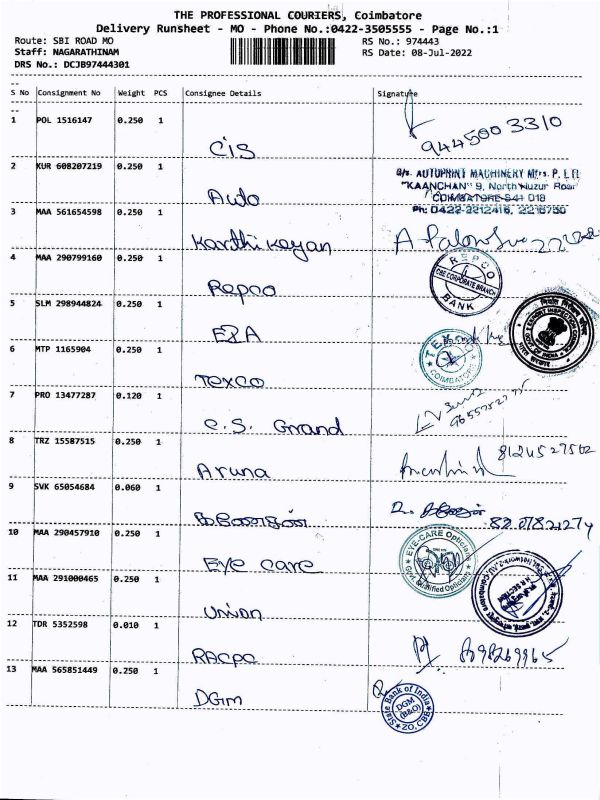 THE PROFESSIONAL COURIERS, Coimbatore
Delivery Runsheet - MO - Phone No.:0422-3505555 - Page No.:1
Route: SBI ROAD MO
RS No.: 974443
Staff: NAGARATHINAM
RS Date: 08-Jul-2022
DRS No.: DCJB97444301
S No Consignment No Weight PCS Consignee Details Signature
1 POL 1516147 0.250 1
CIS 9445003310
2 KUR 608207219 0.250 1
Auto
AUTOPRINT MACHINERY Mfrs. P. LTD
"KAANCHAN" 9, North Huzur Road
COIMBATORE-641 018
Ph: 0422-2212416, 2216750
3 MAA 561654598 0.250 1
Karthikeyan
4 MAA 290799160 0.250 1
Repco
REPCO BANK
CBE CORPORATE BRANCH
5 SLM 298944824 0.250 1
EIA
EXPORT INSPECTION
GOVT. OF INDIA
6 MTP 1165904 0.250 1
Texco
COIMBATORE
7 PRO 13477287 0.120 1
C.S. Grand
8 TRZ 15587515 0.250 1
Aruna
9 SVK 65054684 0.060 1
10 MAA 290457910 0.250 1
Eye care
EYE-CARE Opticians
Govt. Qualified Opticians
11 MAA 291000465 0.250 1
Union
12 TDR 5352598 0.010 1
RACPC
13 MAA 565851449 0.250 1
DGM
State Bank of India
DGM
(B&O)
ZO, CBE